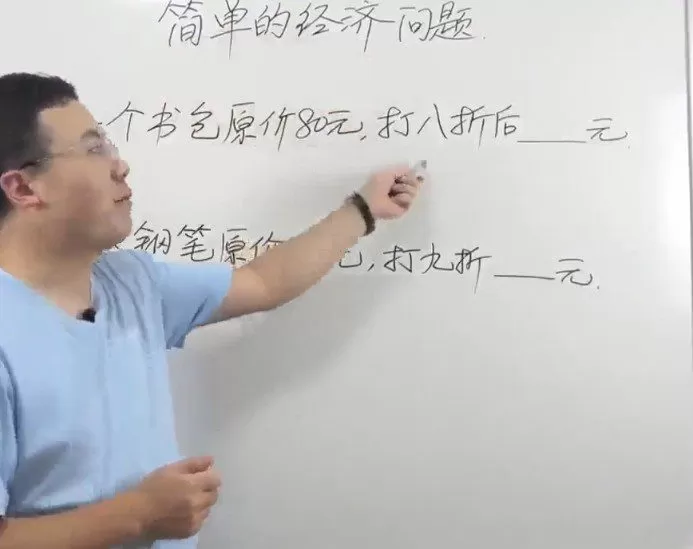 简单的经济问题.
一个书包原价80元,打八折后____元.
钢笔原价 元,打九折____元.